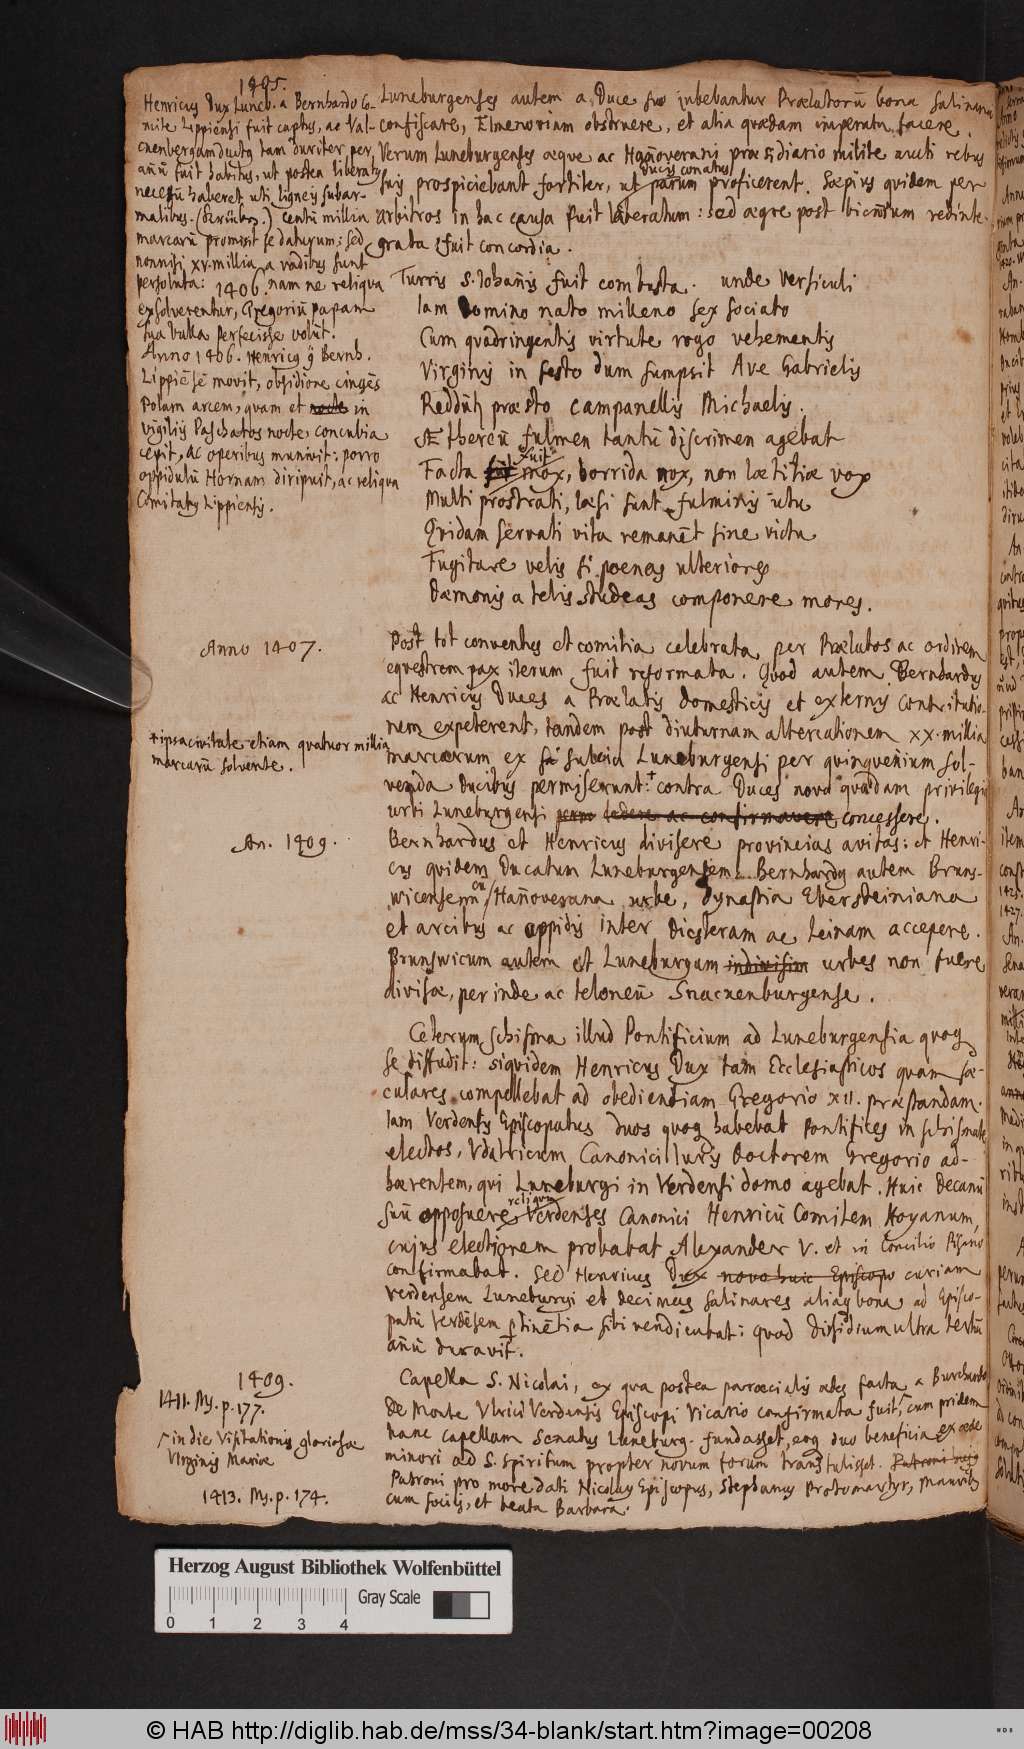 1405.
Henricus Dux Luneb. a Bernhardo Co-
mite Lippiensi fuit captus, ac Val-
cnenbergam ductus tam duriter per
añũ fuit habitus, ut postea liberatus
necessũ haberet uti ligneis subar-
malibus. centũ millia
marcarũ promisit se daturum; sed
nonnisi XV. millia a vadibus sunt
persoluta: 1406. nam ne reliqua
exsolverentur, Gregoriũ papam
sua bulla perfecisse volũt.
Anno 1406. Henricus Bernh.
Lippiẽsẽ movit, obsidione cingẽs
Polam arcem, quam et nocte in
vigiliis Paschatos nocte concubia
cepit, ac operibus munivit: porro
oppidulũ Hornam diripuit, ac reliqua
Comitatus Lippiensis.
Luneburgenses autem a Duce suo iubebantur Prælatorũ bona salinaria
confiscare, Elmenoviam obstruere, et alia quædam imperata facere.
Verum Luneburgenses æque ac Hañoverani præsidiario milite aucti rebus
ducis conatus
suis prospiciebant fortiter, ut parum proficerent. Sæpius quidem per
arbitros in hac causa fuit laboratum: sed ægre post biennium redinte-
grata fuit concordia.
Turris S. Johañis fuit combusta. unde versiculi
Iam Domino nato milleno sex sociato
Cum quadringentis virtute rogo vehementis
Virginis in festo dum sumpsit Ave Gabrielis
Reddũt præsto campanellis Michaelis.
Æthereũ fulmen tantũ discrimen agebat
fuit
Facta fuit mox, horrida nox, non lætitiæ vox
Multi prostrati, læsi sunt fulminis ictu
Quidam servati vita remanẽt sine victu
Fugitare velis si poenas ulteriores
Dæmonis a telis studeas componere mores.
Anno 1407.
Post tot conventus et comitia celebrata per Prælatos ac ordinem
equestrem pax iterum fuit reformata. Quod autem Bernhardus
ac Henricus Duces a Prælatis domesticis et externis contributio-
nem expeterent, tandem post diuturnam altercationem XX. millia
marcarum ex subsid Luneburgensi per quinquenium sol-
venda Ducibus permiserunt:+ contra Duces nova quædam privilegia
urbi Luneburgensi dedere ac confirmavere concessere.
+ ipsa civitate etiam quatuor millia
marcarũ solvente.
An. 1409.
Bernhardus et Henricus divisere provincias avitas: et Henri-
cus quidem Ducatum Luneburgensem: Bernhardus autem Bruns-
wicensem cũ Hañoverana urbe, dynastia Ebersteiniana
et arcibus ac oppidis inter Diesteram ac Leinam accepere.
Brunswicum autem et Luneburgum indivisim urbes non fuere
divisæ, perinde ac teloneũ Snacnenburgense.
Ceterum schisma illud Pontificium ad Luneburgensia quoque
se diffudit: siquidem Henricus Dux tam Ecclesiasticos quam sæ-
culares compellebat ad obedientiam Gregorio XII. præstandam.
Iam Verdensis Episcopatus duos quoque habebat Pontifices in schismate
electos, Vdalricum Canonici Iuris Doctorem Gregorio ad-
hærentem, qui Luneburgi in Verdensi domo agebat. Huic Decanũ
reliqui
suũ opposuere Verdenses Canonici Henricũ Comitem Hoyanum,
cujus electionem probabat Alexander V. et in Concilio Pisano
confirmabat. Sed Henricus Dux novo huic Episcopo curiam
Verdensem Luneburgi et decimas salinares aliaque bona ad Episco-
patũ Verdẽsem ptinẽtia sibi vendicabat: quod dissidium ultra tertiũ
añũ duravit.
1409.
1411. Ms. p. 177.
in die Visitationis gloriosæ
Virginis Mariæ
1413. Ms. p. 174.
Capella S. Nicolai, ex qua postea paræcialis ædes facta a Burchardo
de Monte Vlrici Verdensis Episcopi Vicario confirmata fuit, cum pridem
hanc capellam Senatus Luneburg. fundasset, eoque duo beneficia ex æde
minori ad S. Spiritum propter novum forum transtulisset. Patroni hujus
Patroni pro more dati Nicolaus Episcopus, Stephanus Protomartyr, Mauritius
cum sociis, et beata Barbara.
Herzog August Bibliothek Wolfenbüttel
Gray Scale
0 1 2 3 4
© HAB http://diglib.hab.de/mss/34-blank/start.htm?image=00208